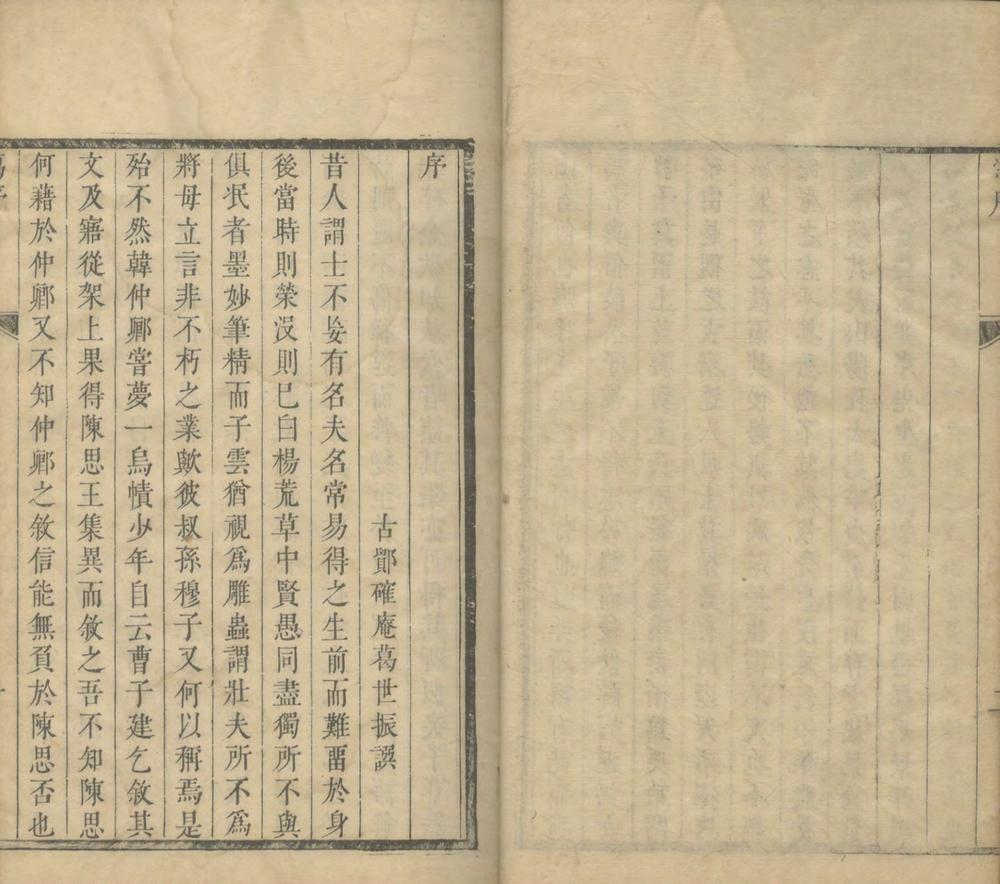 序
古鄮確庵葛世振譔
昔人謂士不妄有名夫名常易得之生前而難畱於身
後當時則榮沒則已白楊荒草中賢愚同盡獨所不與
俱泯者墨妙筆精而子雲猶視爲雕蟲謂壯夫所不爲
將毋立言非不朽之業歟彼叔孫穆子又何以稱焉是
殆不然韓仲卿嘗夢一烏幘少年自云曹子建乞敘其
文及寤從架上果得陳思王集異而敘之吾不知陳思
何藉於仲卿又不知仲卿之敘信能無負於陳思否也